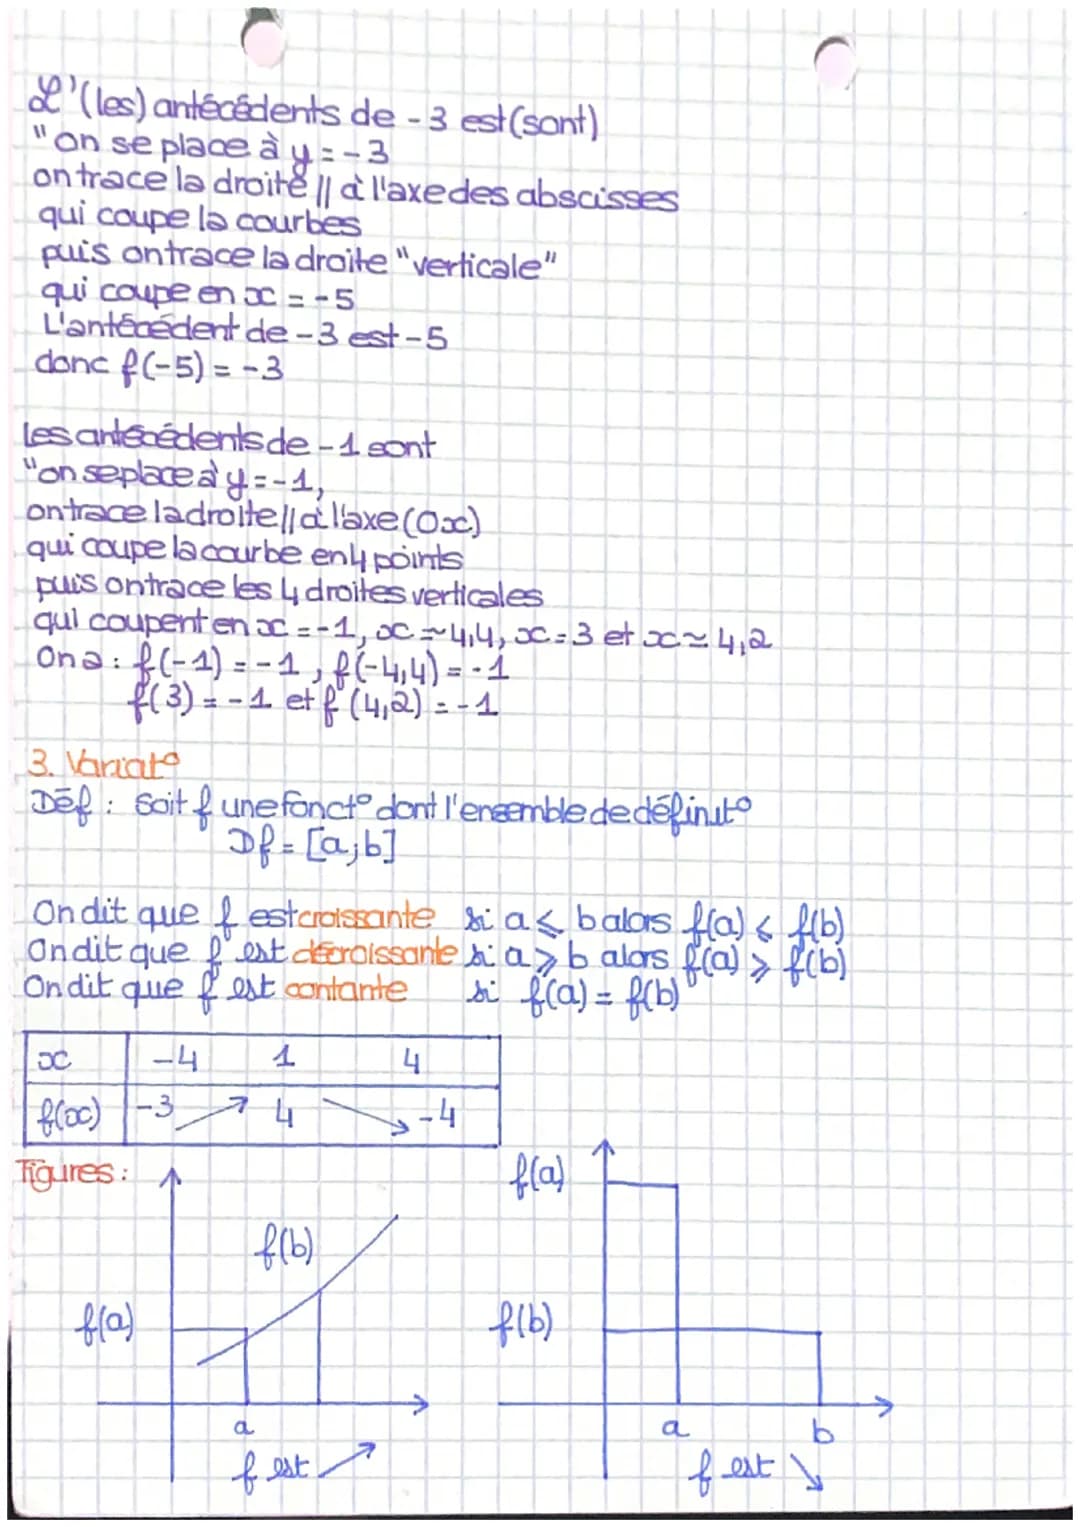 L'(les) antécédents de -3 est (sont)
"on se place à y = -3
on trace la droite // à l'axe des abscisses
qui coupe la courbes
puis on trace la droite "verticale"
qui coupe en x = -5
L'antécédent de -3 est -5
donc f(-5) = -3
les antécédents de -1 sont
"on se place à y = -1,
on trace la droite // à l'axe (Ox)
qui coupe la courbe en 4 points
puis on trace les 4 droites verticales
qui coupent en x = -1, x ≃ 4,4, x = 3 et x ≃ 4,2
On a : f(-1) = -1, f(-4,4) = -1
f(3) = -1 et f(4,2) = -1
3. Variat°
Déf : Soit f une fonct° dont l'ensemble de définit°
Df = [a;b]
On dit que f est croissante si a ⩽ b alors f(a) ⩽ f(b)
On dit que f est décroissante si a ⩾ b alors f(a) ⩾ f(b)
On dit que f est contante si f(a) = f(b)
x -4 1 4
f(x) -3 ↗ 4 ↘ -4
Figures :
f(a)
f(b)
f(a)
f(b)
a
a b
f est ↗
f est ↘